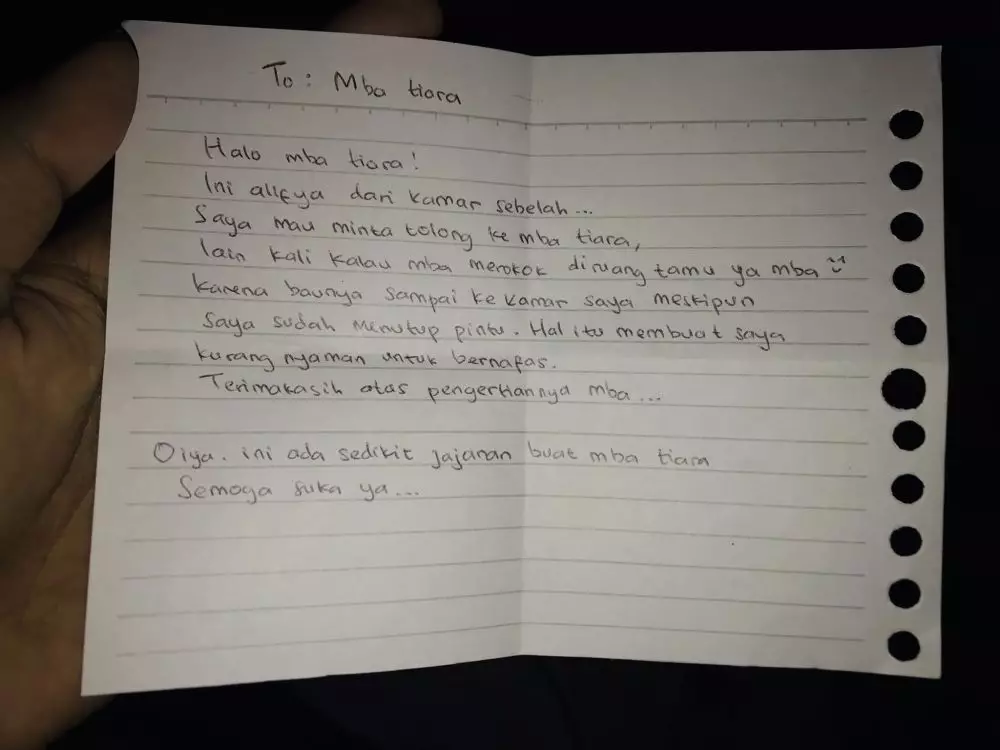 To : Mba tiara
Halo mba tiara!
Ini alleya dari kamar sebelah...
Saya mau minta tolong ke mba tiara,
lain kali kalau mba merokok diruang tamu ya mba
karena baunya sampai ke kamar saya meskipun
Saya sudah menutup pintu. Hal itu membuat saya
kurang nyaman untuk bernafas.
Terimakasih atas pengertiannya mba...
Oiya. ini ada sedikit jajanan buat mba tiara
Semoga suka ya...